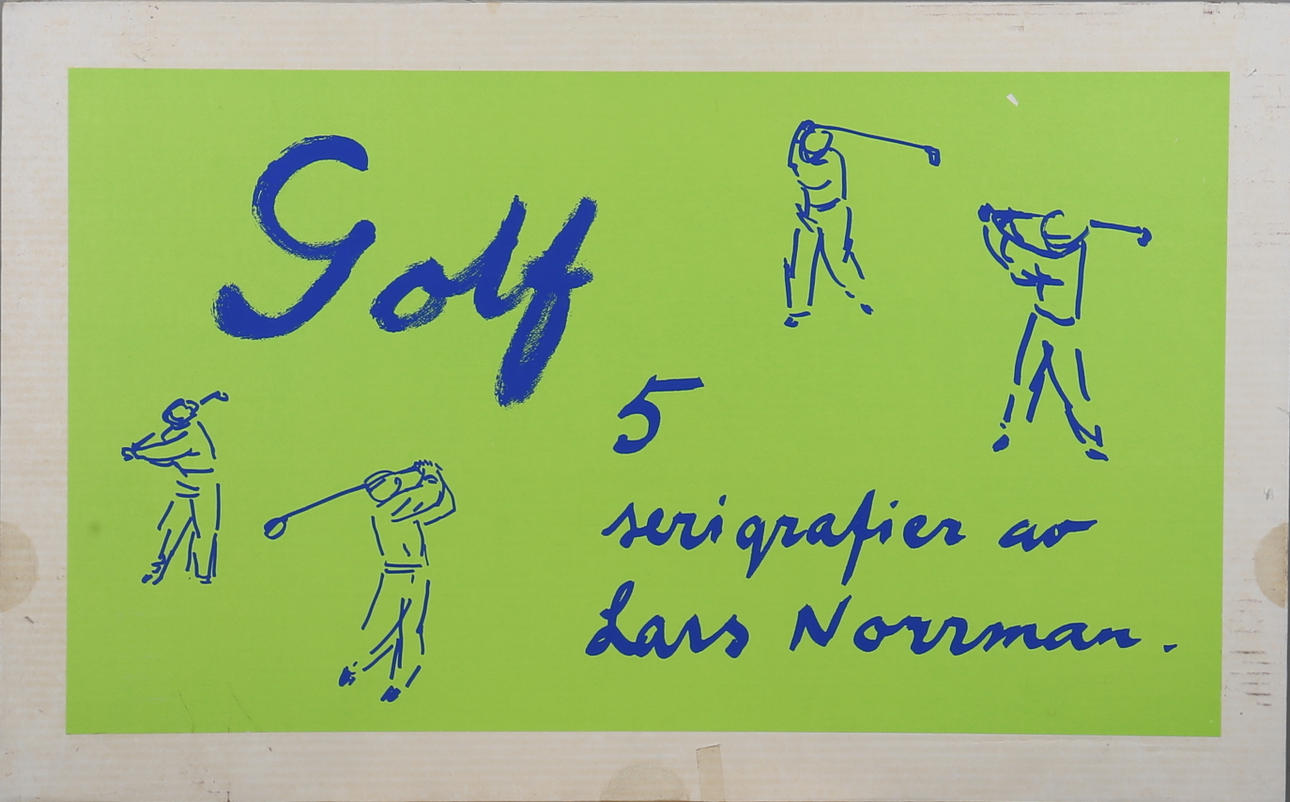 Golf
5
serigrafier av
Lars Norrman.